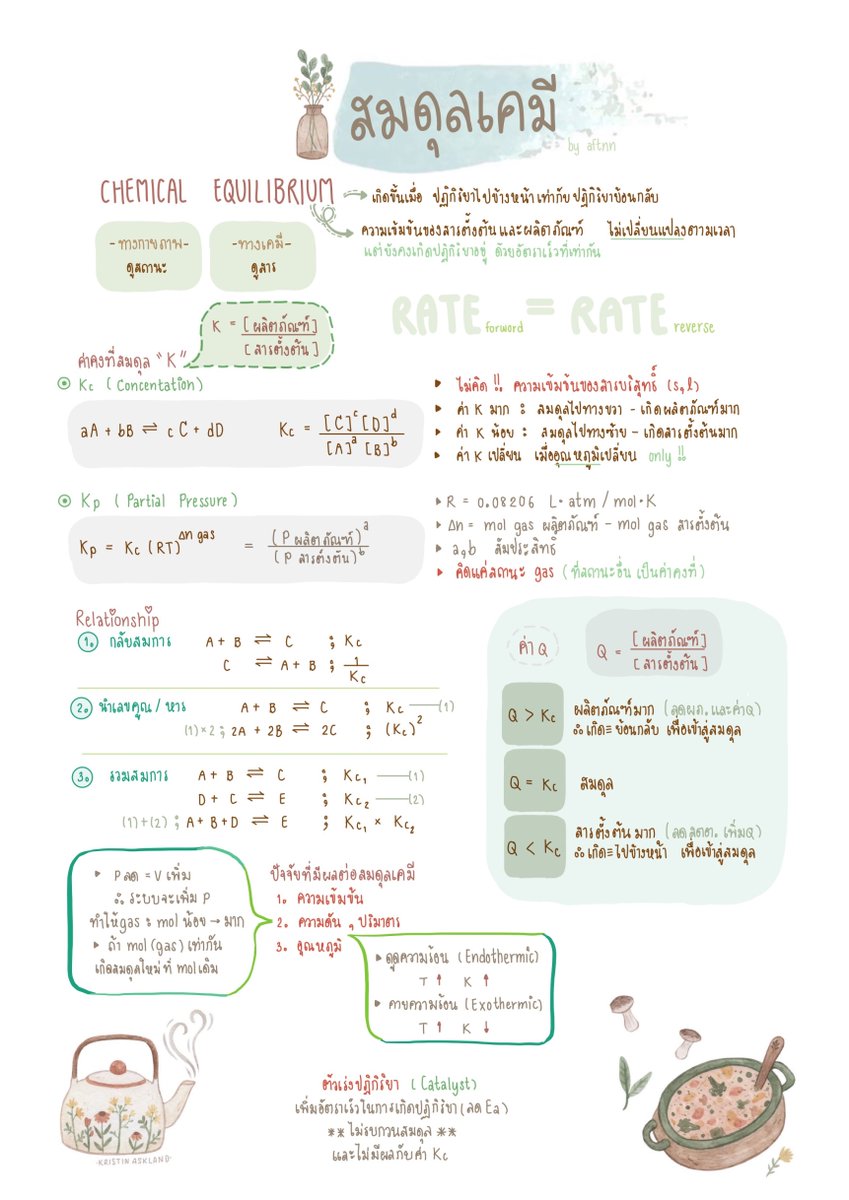 สมดุลเคมี
by aftnn
CHEMICAL EQUILIBRIUM → เกิดขึ้นเมื่อ ปฏิกิริยาไปข้างหน้าเท่ากับปฏิกิริยาย้อนกลับ
ความเข้มข้นของสารตั้งต้นและผลิตภัณฑ์ ไม่เปลี่ยนแปลงตามเวลา
แต่ยังคงเกิดปฏิกิริยาอยู่ ด้วยอัตราเร็วที่เท่ากัน
-ทางกายภาพ-
ดูสถานะ
-ทางเคมี-
ดูสาร
RATE forword = RATE reverse
K = [ผลิตภัณฑ์] / [สารตั้งต้น]
ค่าคงที่สมดุล "K"
Kc (Concentation)
aA + bB ⇌ cC + dD
Kc = [C]^c [D]^d / [A]^a [B]^b
▸ ไม่คิด !! ความเข้มข้นของสารบริสุทธิ์ (s,l)
▸ ค่า K มาก : สมดุลไปทางขวา - เกิดผลิตภัณฑ์มาก
▸ ค่า K น้อย : สมดุลไปทางซ้าย - เกิดสารตั้งต้นมาก
▸ ค่า K เปลี่ยน เมื่ออุณหภูมิเปลี่ยน only !!
Kp (Partial Pressure)
Kp = Kc (RT)^Δn gas = (P ผลิตภัณฑ์)^a / (P สารตั้งต้น)^b
▸ R = 0.08206 L·atm / mol·K
▸ Δn = mol gas ผลิตภัณฑ์ - mol gas สารตั้งต้น
▸ a,b สัมประสิทธิ์
▸ คิดแค่สถานะ gas (ที่สถานะอื่น เป็นค่าคงที่)
Relationship
1. กลับสมการ A + B ⇌ C ; Kc
C ⇌ A + B ; 1/Kc
2. นำเลขคูณ / หาร A + B ⇌ C ; Kc —(1)
(1)×2 ; 2A + 2B ⇌ 2C ; (Kc)^2
3. รวมสมการ A + B ⇌ C ; Kc1 —(1)
D + C ⇌ E ; Kc2 —(2)
(1)+(2) ; A+B+D ⇌ E ; Kc1 × Kc2
ค่า Q
Q = [ผลิตภัณฑ์] / [สารตั้งต้น]
Q > Kc
ผลิตภัณฑ์มาก (ลดผภ. และค่าQ)
∴ เกิด≡ ย้อนกลับ เพื่อเข้าสู่สมดุล
Q = Kc
สมดุล
Q < Kc
สารตั้งต้นมาก (ลดสตต. เพิ่มQ)
∴ เกิด≡ ไปข้างหน้า เพื่อเข้าสู่สมดุล
▸ Pลด = V เพิ่ม
∴ ระบบจะเพิ่ม P
ทำให้gas : mol น้อย → มาก
▸ ถ้า mol (gas) เท่ากัน
เกิดสมดุลใหม่ที่ molเดิม
ปัจจัยที่มีผลต่อสมดุลเคมี
1. ความเข้มข้น
2. ความดัน , ปริมาตร
3. อุณหภูมิ
▸ ดูดความร้อน (Endothermic)
T ↑ K ↑
▸ คายความร้อน (Exothermic)
T ↑ K ↓
ตัวเร่งปฏิกิริยา (Catalyst)
เพิ่มอัตราเร็วในการเกิดปฏิกิริยา (ลด Ea)
** ไม่รบกวนสมดุล **
และไม่มีผลกับค่า Kc
·KRISTIN ASKLAND·